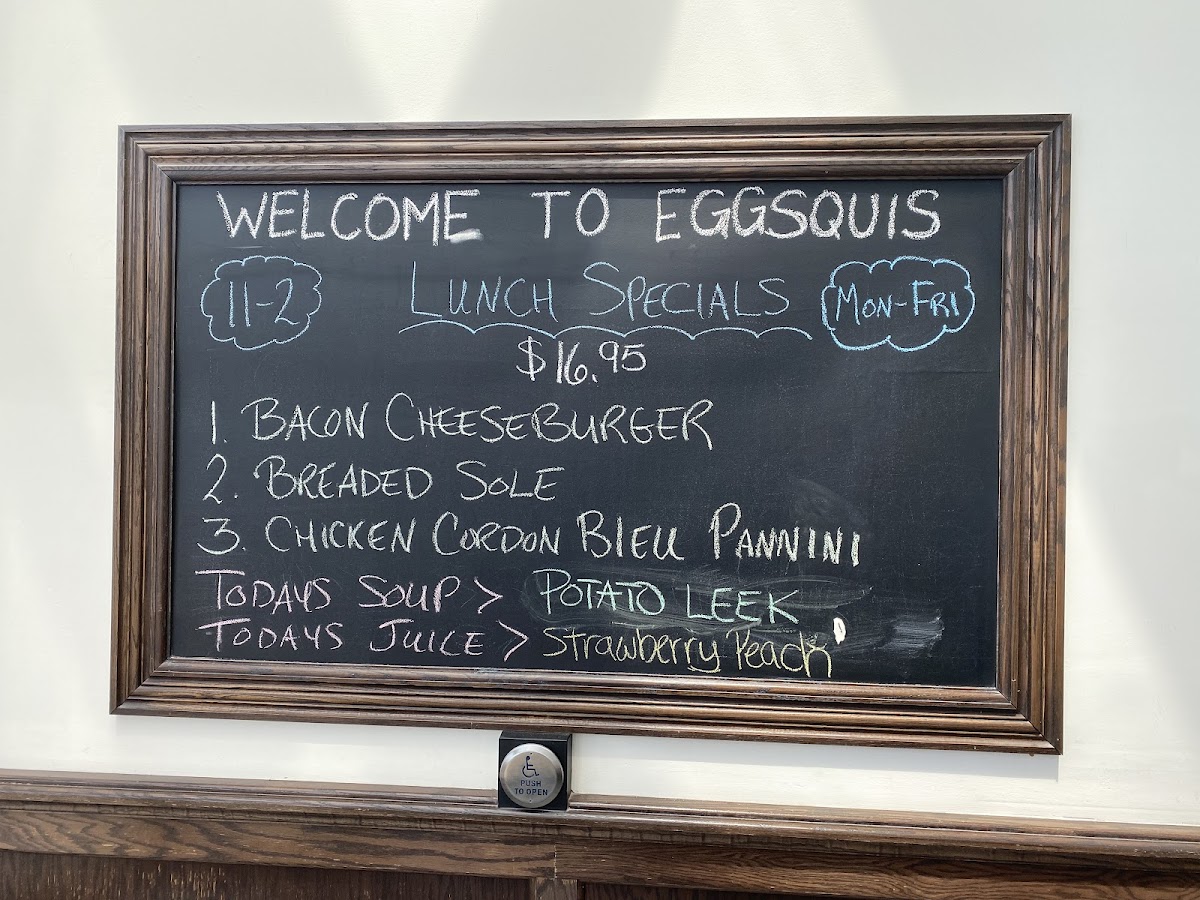 WELCOME TO EGGSQUIS
11-2 LUNCH SPECIALS MON-FRI
$16.95
1. BACON CHEESEBURGER
2. BREADED SOLE
3. CHICKEN CORDON BLEU PANNINI
TODAYS SOUP > POTATO LEEK
TODAYS JUICE > Strawberry Peach
PUSH
TO OPEN